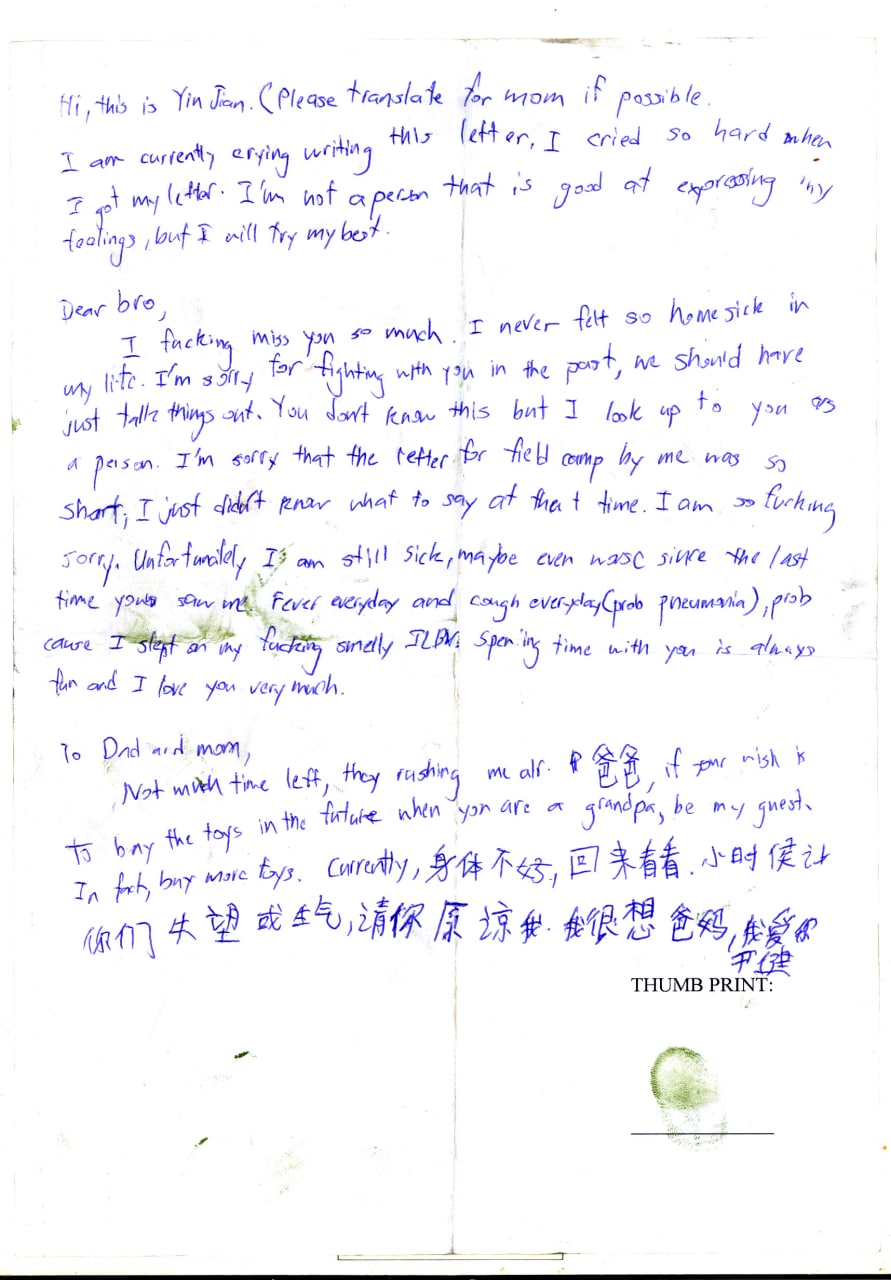 Hi, this is Yin Jian. (Please translate for mom if possible.
I am currently crying writing this letter, I cried so hard when
I got my letter. I'm not a person that is good at expressing my
feelings, but I will try my best.
Dear bro,
I fucking miss you so much. I never felt so homesick in
my life. I'm sorry for fighting with you in the past, we should have
just talk things out. You don't know this but I look up to you as
a person. I'm sorry that the letter for field camp by me was so
short, I just didn't know what to say at that time. I am so fucking
sorry. Unfortunately I am still sick, maybe even worse since the last
time you saw me. Fever everyday and cough everyday (prob pneumonia), prob
cause I slept on my fucking smelly ILBV. Spening time with you is always
fun and I love you very much.
To Dad and mom,
Not much time left, they rushing me alr. 爸爸, if your wish is
to buy the toys in the future when you are a grandpa, be my guest.
In fact, buy more toys. Currently, 身体不好, 回来看看. 小时侯让
你们失望或生气, 请你原谅我. 我很想爸妈, 我爱你
尹健
THUMB PRINT: